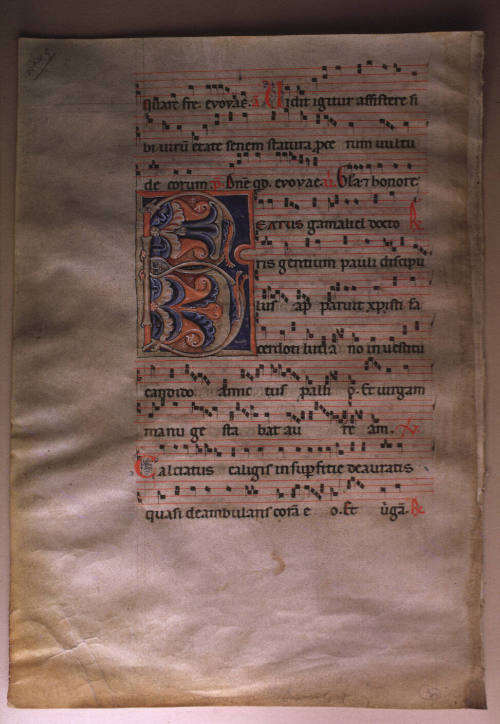 quare fre. evovae. a Vidit igitur assistere si
bi virū etate senem statura proce rum vultu
de corum. Dn̄e qd. evovae. Gl̄a ⁊ honore
BEATUS gamaliel docto
ris gentium pauli discipu
lus ap paruit xp̄isti sa
cerdoti lucia no in vestitu
candido amic tus palli o. Et virgam
manu ge sta bat au re am.
Calciatus caligis in sup̄fitie deauratis
quasi deambulans corā e o. Et v̄gā.